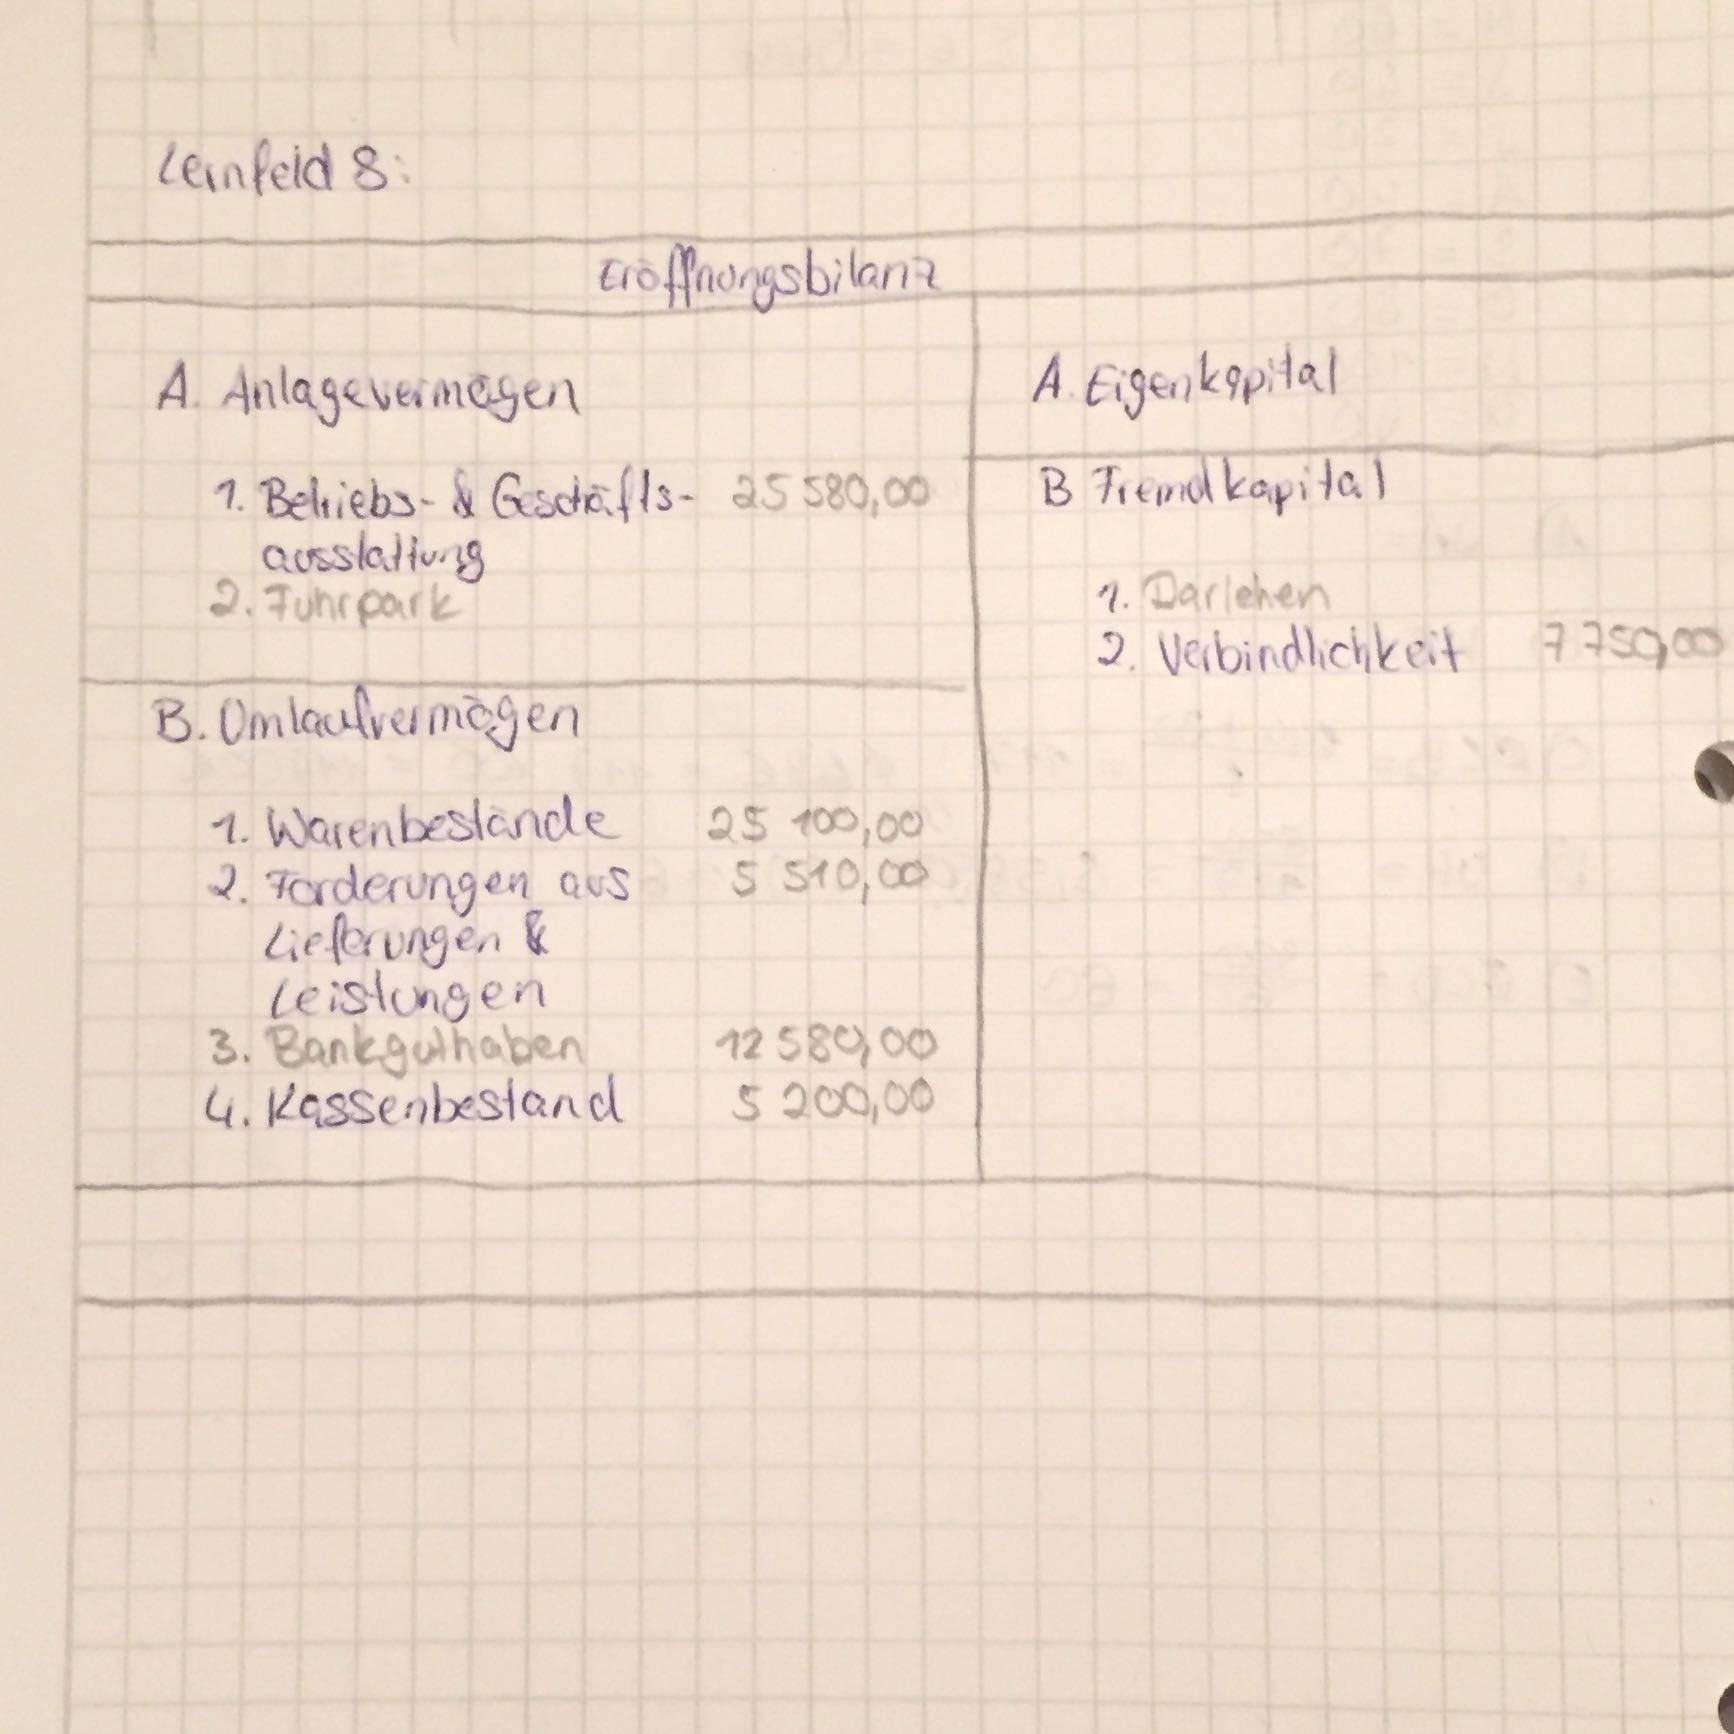 Lernfeld 8:
Eröffnungsbilanz
A. Anlagevermögen
1. Betriebs- & Geschäfts- 25 580,00
ausstattung
2. Fuhrpark
B. Umlaufvermögen
1. Warenbestände 25 100,00
2. Forderungen aus 5 510,00
Lieferungen &
Leistungen
3. Bankguthaben 12 580,00
4. Kassenbestand 5 200,00
A. Eigenkapital
B Fremdkapital
1. Darlehen
2. Verbindlichkeit 7 750,00